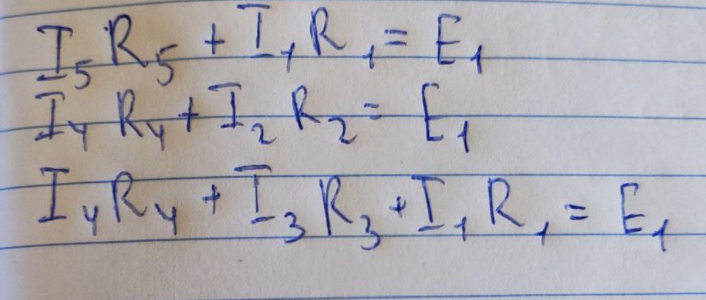 I₅R₅ + I₁R₁ = E₁
I₄R₄ + I₂R₂ = E₁
I₄R₄ + I₃R₃ + I₁R₁ = E₁